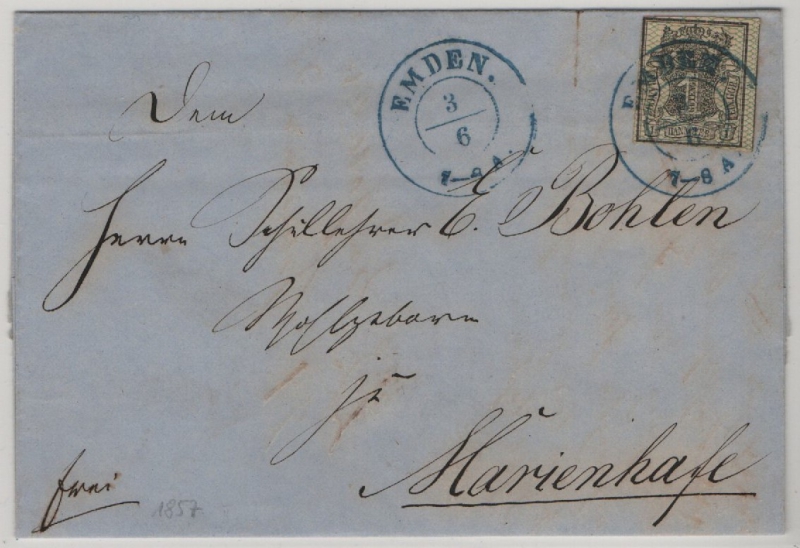 EMDEN.
3
6
7—8 A.
EMDEN
6
7—8 A.
Dem
Herrn Schullehrer E. Bohlen
Wohlgeboren
zu
Marienhafe
frei
1857